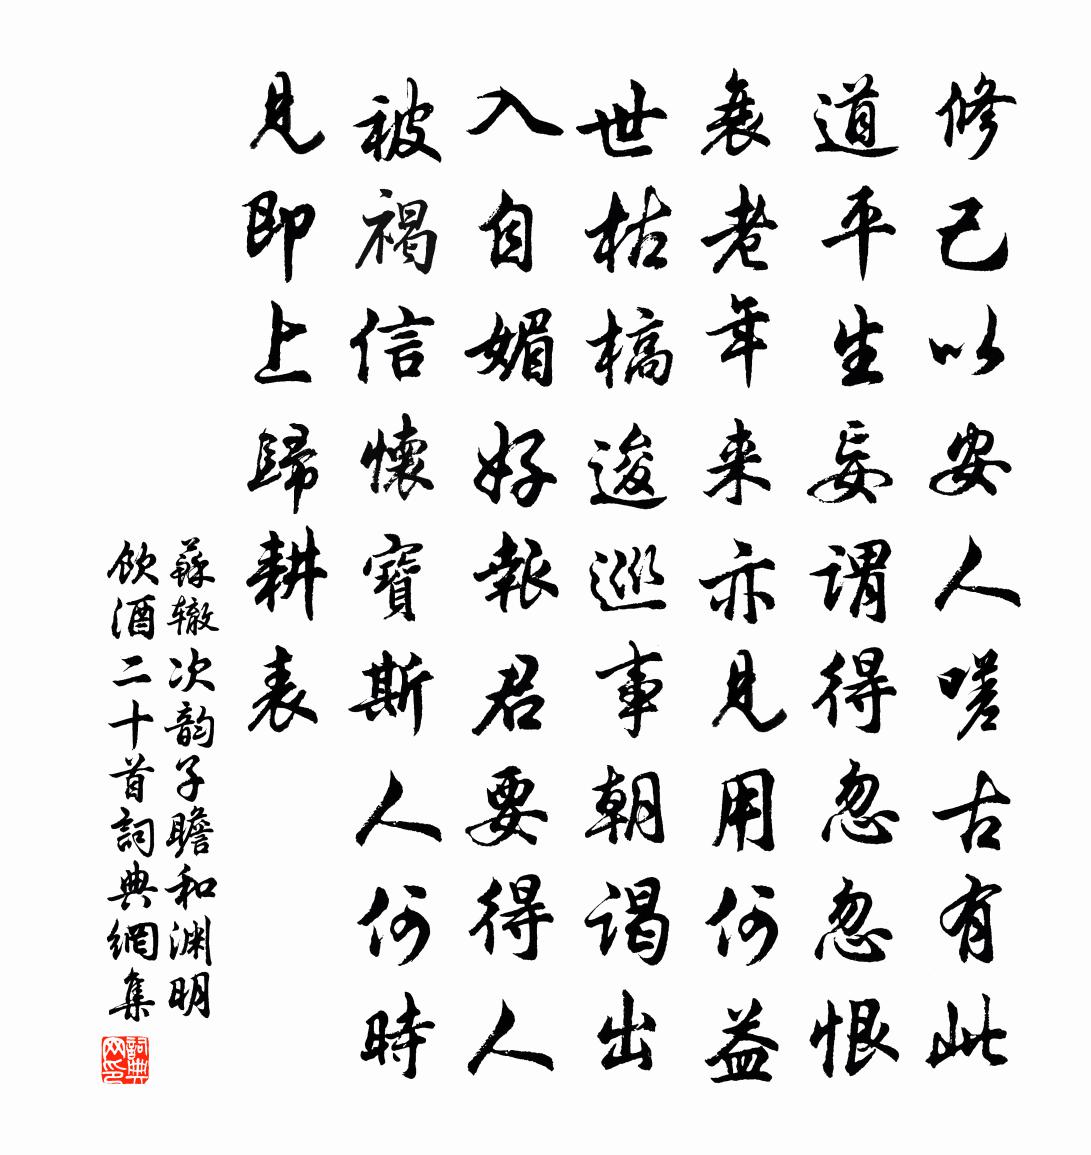 修己以安人嗟古有此
道平生妄謂得忽忽恨
衰老年来亦見用何益
世枯槁逡巡事朝謁出
入自媚好報君要得人
被褐信懷寶斯人何時
見即上歸耕表
蘇辙次韵子瞻和渊明
飲酒二十首詞典網集
詞典
网印